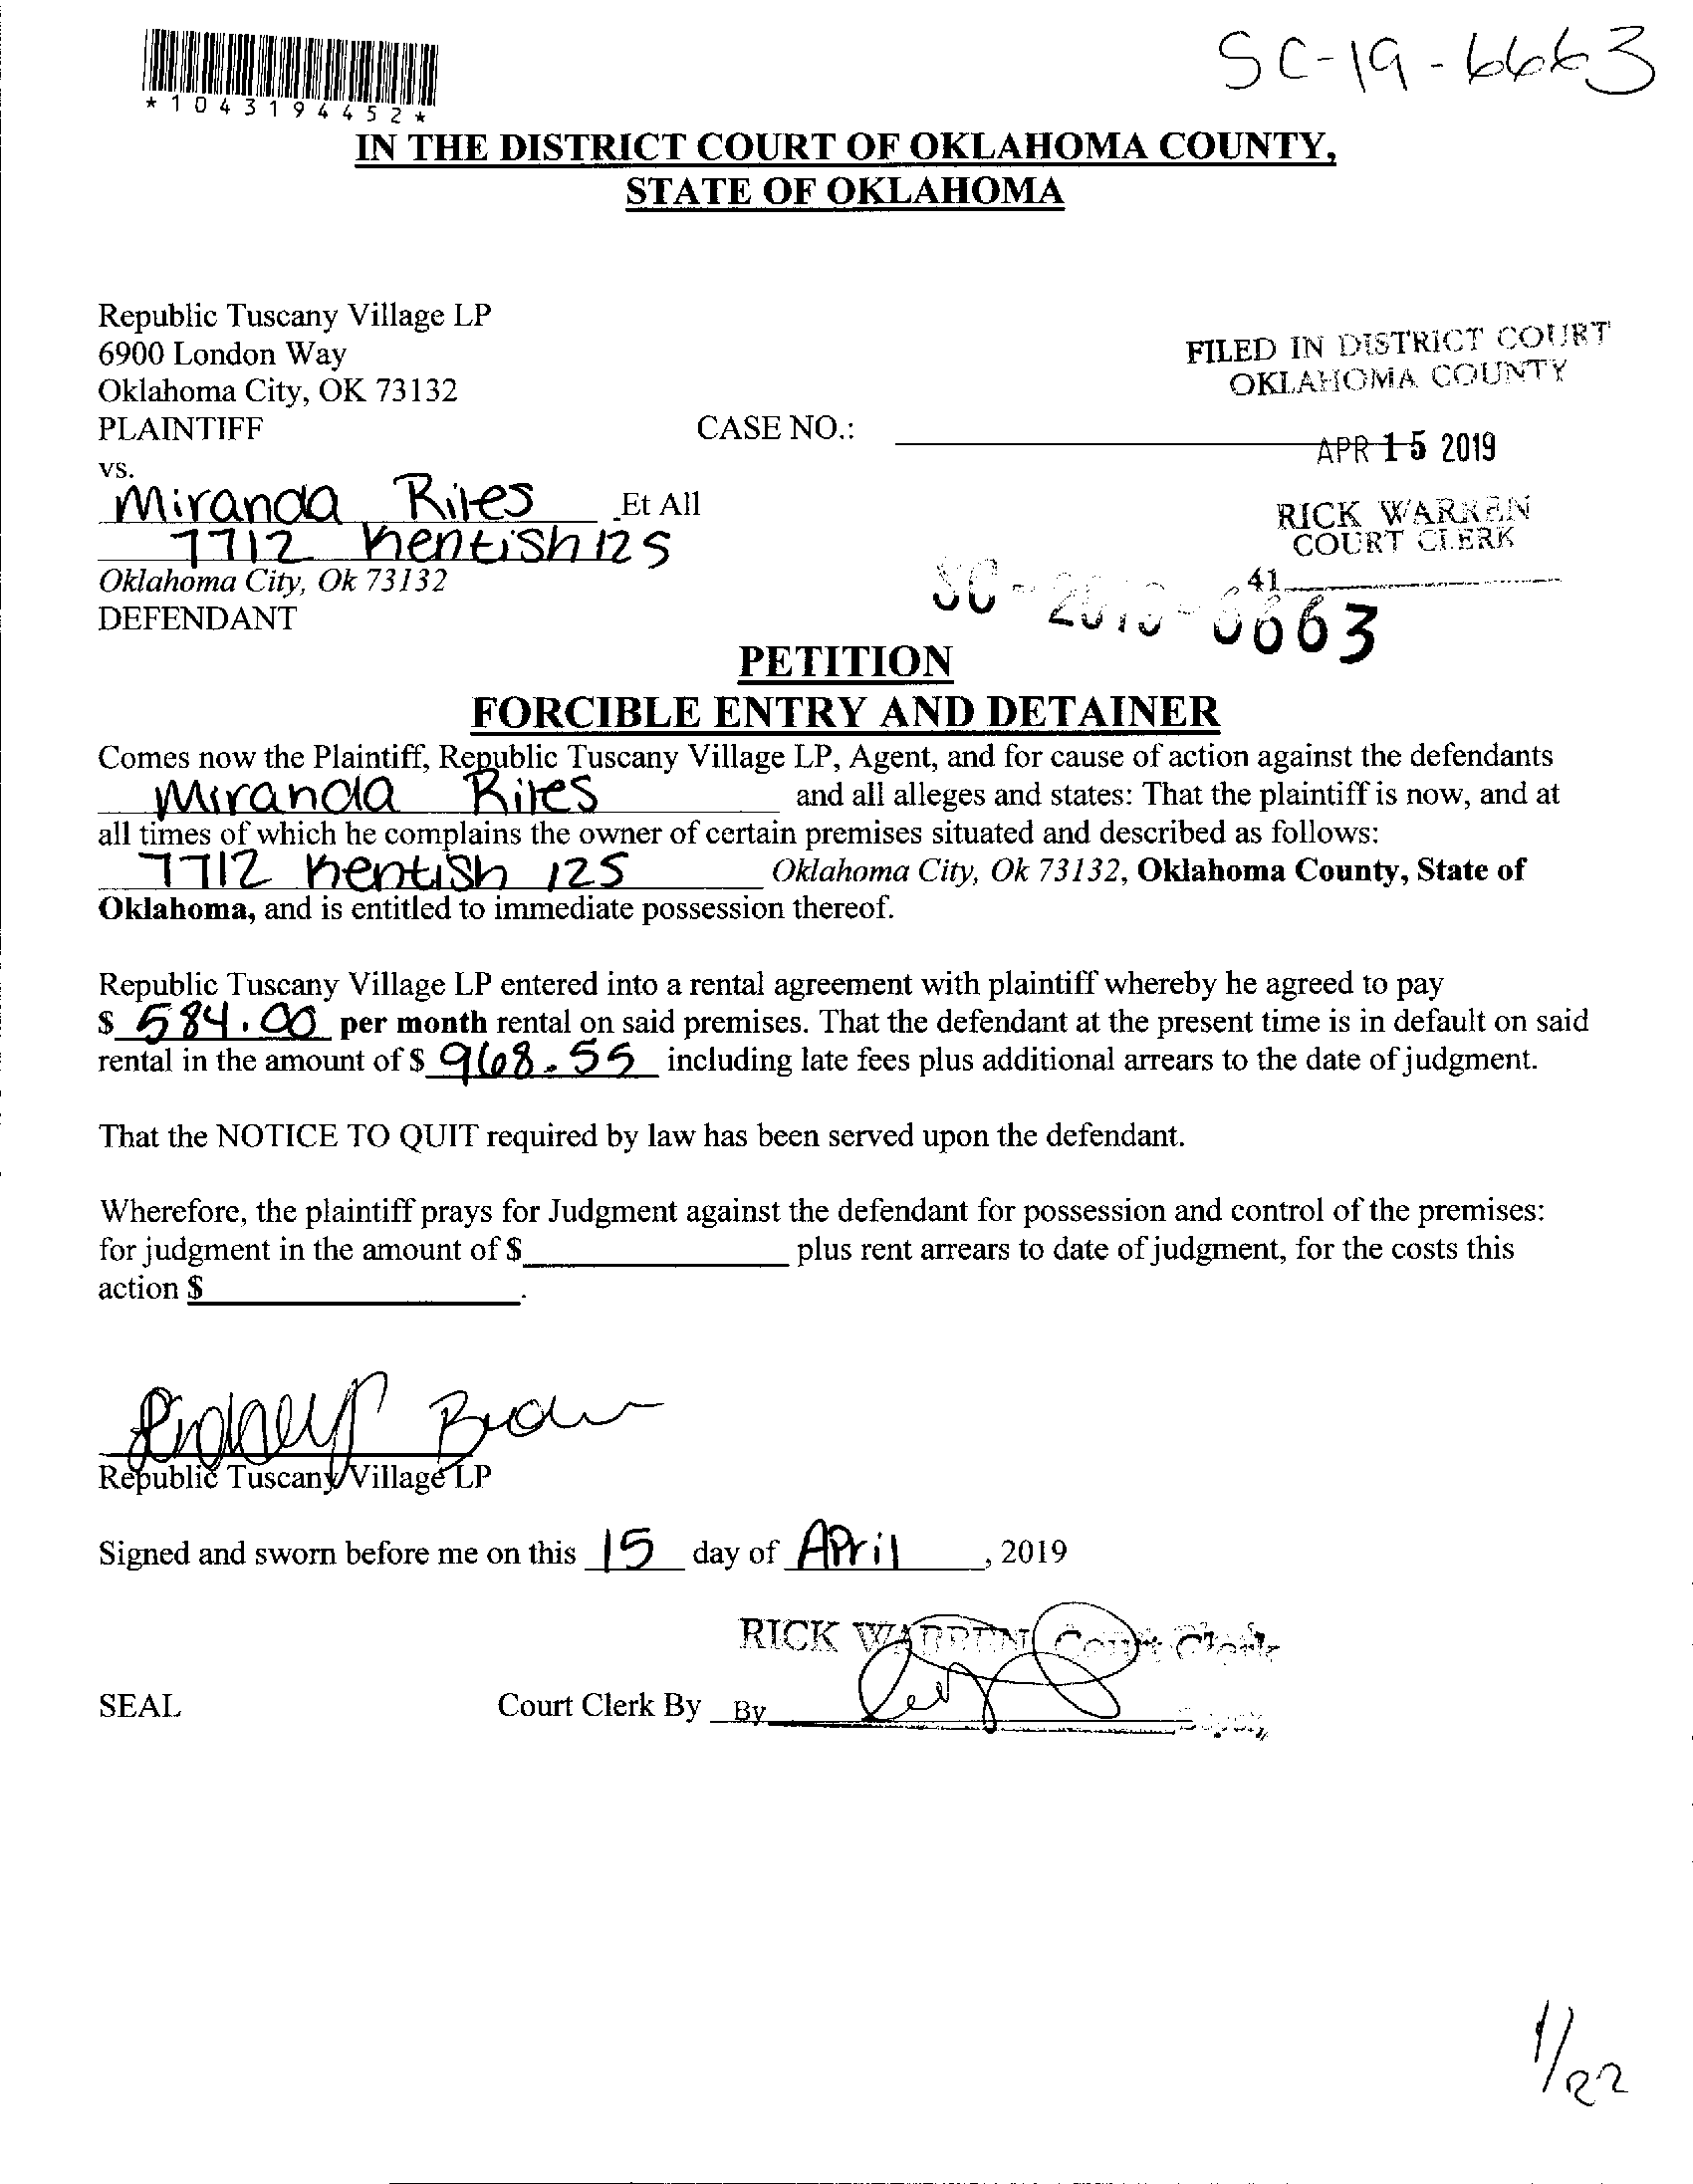 SC-19-6663
*1043194452*
IN THE DISTRICT COURT OF OKLAHOMA COUNTY,
STATE OF OKLAHOMA
Republic Tuscany Village LP
6900 London Way
Oklahoma City, OK 73132
PLAINTIFF
CASE NO.:
FILED IN DISTRICT COURT
OKLAHOMA COUNTY
APR 15 2019
RICK WARREN
COURT CLERK
41
vs.
Miranda Riles Et All
7712 Kentish 125
Oklahoma City, Ok 73132
DEFENDANT
PETITION
FORCIBLE ENTRY AND DETAINER
Comes now the Plaintiff, Republic Tuscany Village LP, Agent, and for cause of action against the defendants
Miranda Riles and all alleges and states: That the plaintiff is now, and at
all times of which he complains the owner of certain premises situated and described as follows:
7712 Kentish 125 Oklahoma City, Ok 73132, Oklahoma County, State of
Oklahoma, and is entitled to immediate possession thereof.
Republic Tuscany Village LP entered into a rental agreement with plaintiff whereby he agreed to pay
$ 584.00 per month rental on said premises. That the defendant at the present time is in default on said
rental in the amount of $ 968.55 including late fees plus additional arrears to the date of judgment.
That the NOTICE TO QUIT required by law has been served upon the defendant.
Wherefore, the plaintiff prays for Judgment against the defendant for possession and control of the premises:
for judgment in the amount of $ plus rent arrears to date of judgment, for the costs this
action $ .
Republic Tuscany Village LP
Signed and sworn before me on this 15 day of April, 2019
RICK WARREN Court Clerk
SEAL Court Clerk By By Deputy
1/22